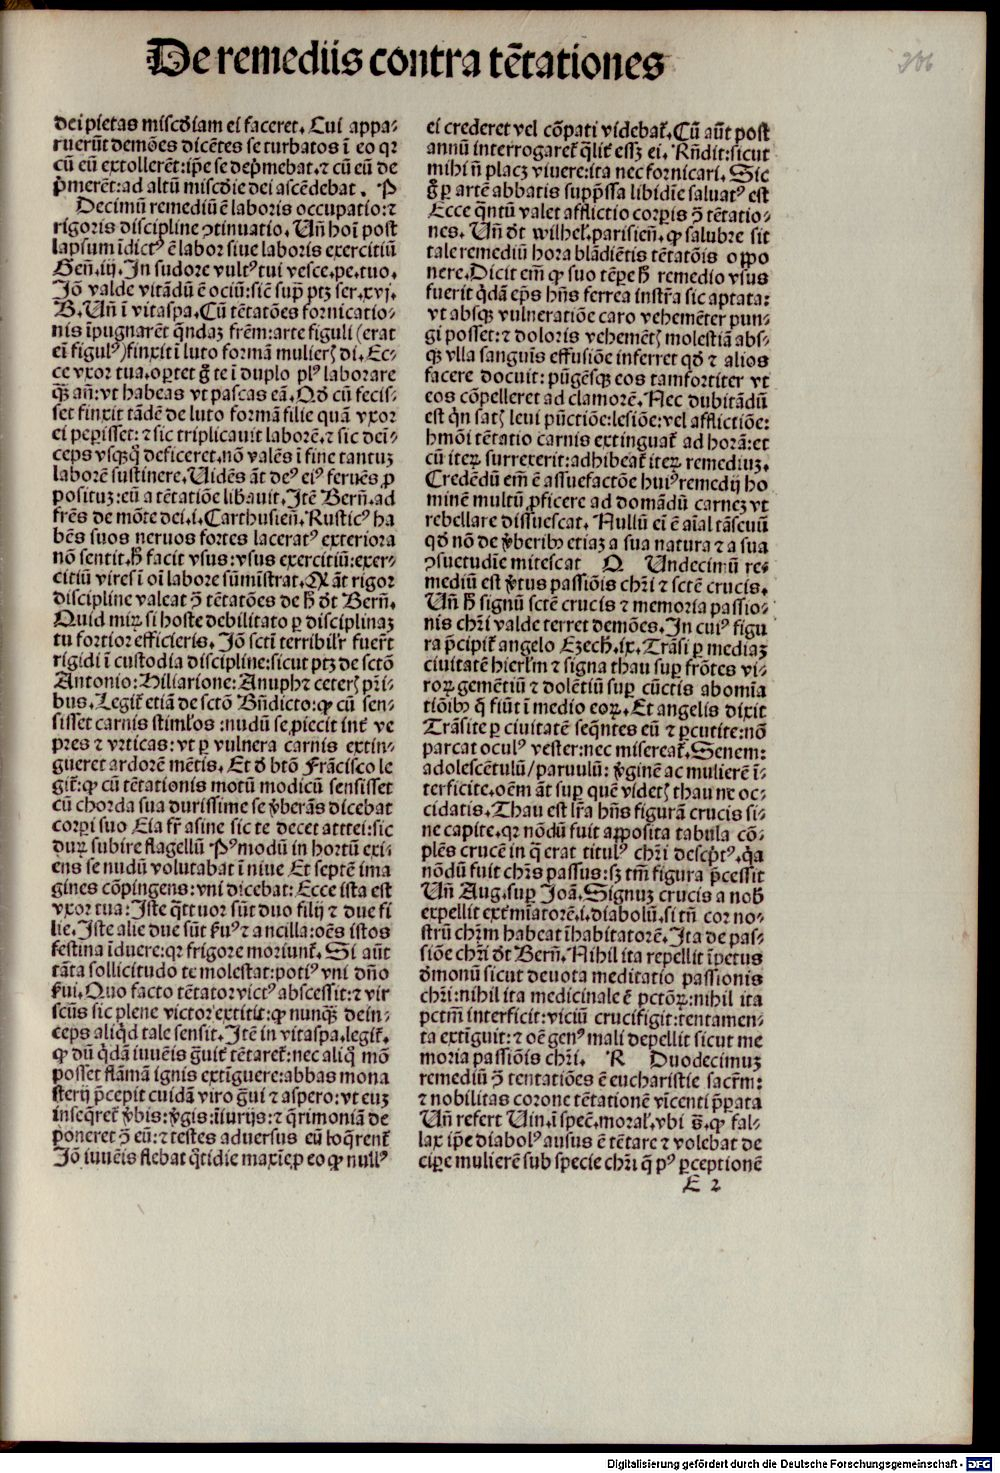 De remediis contra tētationes
206
dei pietas miscďiam ei faceret. Cui appa-
ruerūt demões dicētes se turbatos ī eo qꝛ
cū eū extollerēt: ip̄e se dep̄mebat. ⁊ cū eū de
p̄merēt: ad altū miscďie dei ascēdebat. P
Decimū remediū ē laboris occupatio: ⁊
rigoris discipline ↄtinuatio. Uñ hoī post
lapsum īdictꝰ ē labor siue laboris exercitiū
Geñ. iij. In sudore vultꝰ tui vesce. pe. tuo.
Jō valde vitādū ē ociū: siē supͣ ptꝫ ser. xvj.
B. Uñ ī vitaspa. Cū tētatões fornicatio-
nis īpugnarēt qͥndaꝫ frēm: arte figuli (erat
eī figulꝰ) finxit ī luto formā mulierꝭ di. Ec-
ce vxor tua. oꝑtet gͦ te ī duplo plꝰ laborare
qͣꝫ añ: vt habeas vt pascas eā. Qď cū fecis-
set finxit tādē de luto formā filie quā vxor
ei peꝑisset: ⁊ sic triplicauit laborē. ⁊ sic deī-
ceps vsqꝫqͦ deficeret. nō valēs ī fine tantuꝫ
laborē sustinere. Uidēs āt deꝰ eiꝰ feruēs ꝓ
posituꝫ: eū a tētatiõe libauit. Itē Berñ. ad
frēs de mōte dei. i. Carthusieñ. Rusticꝰ ha
bēs suos neruos fortes laceratꝰ exteriora
nō sentit. h̄ facit vsus: vsus exercitiū: exer-
citiū vires ī oī labore sūmīstrat. Qͣāt rigor
discipline valeat ↄ̄ tētatões de h̄ ďt Berñ.
Quid miꝝ si hoste debilitato ꝑ disciplinaꝫ
tu fortior efficieris. Jō sctī terribilr̄ fuer̄t
rigidi ī custodia discipline: sicut ptꝫ de sctō
Antonio: Hiliarione: Anuph ⁊ ceterꝭ pr̄i-
bus. Legiť etiā de sctō Bñdicto: ꝙ cū sen-
sisset carnis stimľos: nudū se ꝓiecit inť ve
pres ⁊ vrticas: vt ꝑ vulnera carnis extin-
gueret ardorē mētis. Et ď btō Frācisco le
giť: ꝙ cū tētationis motū modicū sensisset
cū chorda sua durissime se v̄berās dicebat
corꝑi suo Eia fr̄ asine sic te decet atttei: sic
duꝝ subire flagellū Pꝰmodū in hortū exi-
ens se nudū volutabat ī niue Et septē ima
gines cōpingens: vni dicebat: Ecce ista est
vxor tua: Iste qͣttuor sūt duo filij ⁊ due fi
lie. Iste alie due sūt ẜuꝰ ⁊ ancilla: oēs istos
festina īduere: qꝛ frigore moriunť. Si aūt
tāta sollicitudo te molestat: potiꝰ vni dño
ẜui. Quo facto tētator victꝰ abscessit: ⁊ vir
scūs sic plene victor extitit: ꝙ nunqͣꝫ dein-
ceps aliqͥd tale sensit. Itē in vitaspa. legiť.
ꝙ dū qͥdā iuuēis gͣuiť tētareť: nec aliqͦ mō
posset flāmā ignis extīguere: abbas mona
sterij p̄cepit cuidā viro gͣui ⁊ aspero: vt euꝫ
inseqͥreť v̄bis: v̄gis: īiurijs: ⁊ qͥrimoniā de
poneret ↄ̄ eū: ⁊ testes aduersus eū loqͥrenť
Jō iuuēis flebat qͦtidie maxīe ꝑ eo ꝙ nullꝰ
ei crederet vel cōpati videbať. Cū aūt post
annū interrogareť qͣliť essꝫ ei. Rñdit: sicut
mihi ñ placꝫ viuere: ita nec fornicari. Sic
gͦ ꝑ artē abbatis supp̄ssa libidīe saluatꝰ est
Ecce qͣntū valet afflictio corꝑis ↄ̄ tētatio-
nes. Uñ ďt wilhel. parisieñ. ꝙ salubre sit
tale remediū hora blādiētis tētatōis oppo
nere. Dicit em̄ ꝙ suo tēꝑe h̄ remedio vsus
fuerit qͥdā ep̄s hñs ferrea instr̄a sic aptata:
vt absqꝫ vulneratiõe caro vehemēter pun-
gi posset: ⁊ doloris vehemētꝭ molestiā abs-
qꝫ vlla sanguīs effusiõe inferret qď ⁊ alios
facere docuit: pūgēsqꝫ eos tamfortiter vt
eos cōpelleret ad clamorē. Nec dubitādū
est qͥn satꝭ leui pūctiõe: lesiõe: vel afflictiõe:
hmōi tētatio carnis extinguať ad horā: et
cū iteꝝ surrexerit: adhibeať iteꝝ remediuꝫ.
Credēdū em̄ ē assuefactōe huiꝰ remedij ho
minē multū ꝓficere ad domādū carneꝫ vt
rebellare dissuescat. Nullū eī ē aīal tā seuū
qď nō de v̄beribꝰ etiaꝫ a sua natura ⁊ a sua
ↄsuetudīe mitescat Q Undecimū re-
mediū est v̄tus passiōis chr̄i ⁊ sctē crucis.
Uñ h̄ signū sctē crucis ⁊ memoria passio-
nis chr̄i valde terret demões. In cuiꝰ figu
ra p̄cipiť angelo Ezech. ix. Trāsi ꝑ mediaꝫ
ciuitatē hierľm ⁊ signa thau suꝑ frōtes vi-
roꝝ gemētiū ⁊ dolētiū suꝑ cūctis abomīa
tiōibꝰ q̄ fiūt ī medio eoꝝ. Et angelis dixit
Trāsite ꝑ ciuitatē seqͥntes eū ⁊ ꝑcutite: nō
parcat oculꝰ vester: nec misereať. Senem:
adolescētulū / paruulū: v̄ginē ac mulierē ī-
terficite. oēm āt suꝑ quē videtꝭ thau ne oc-
cidatis. Thau est lr̄a hñs figurā crucis si-
ne capite. qꝛ nōdū fuit apposita tabula cō-
plēs crucē in q̄ erat titulꝰ chr̄i desc̄ptꝰ. qͥa
nōdū fuit chr̄s passus: sꝫ tm̄ figura p̄cessit
Uñ Aug. suꝑ Joā. Signuꝫ crucis a nob̄
expellit exťmīatorē. i. diabolū. si tñ cor no-
strū chr̄m habeat īhabitatorē. Ita de pas-
siōe chr̄i ďt Berñ. Nihil ita repellit īpetus
ďmonū sicut deuota meditatio passionis
chr̄i: nihil ita medicinale ē pctōꝝ: nihil ita
pctm̄ interficit: viciū crucifigit: tentamen-
ta extīguit: ⁊ oē genꝰ mali depellit sicut me
moria passiōis chr̄i. R Duodecimuꝫ
remediū ↄ̄ tentatiões ē eucharistie sacr̄m:
⁊ nobilitas corone tētationē vīcenti p̄parata
Uñ refert Uin. ī spec̄. moral. vbi s̄. ꝙ fal-
lax ip̄e diabolꝰ ausus ē tētare ⁊ volebat de
ciꝑe mulierē sub specie chr̄i q̄ pꝰ ꝑceptionē
E 2
Digitalisierung gefördert durch die Deutsche Forschungsgemeinschaft - DFG